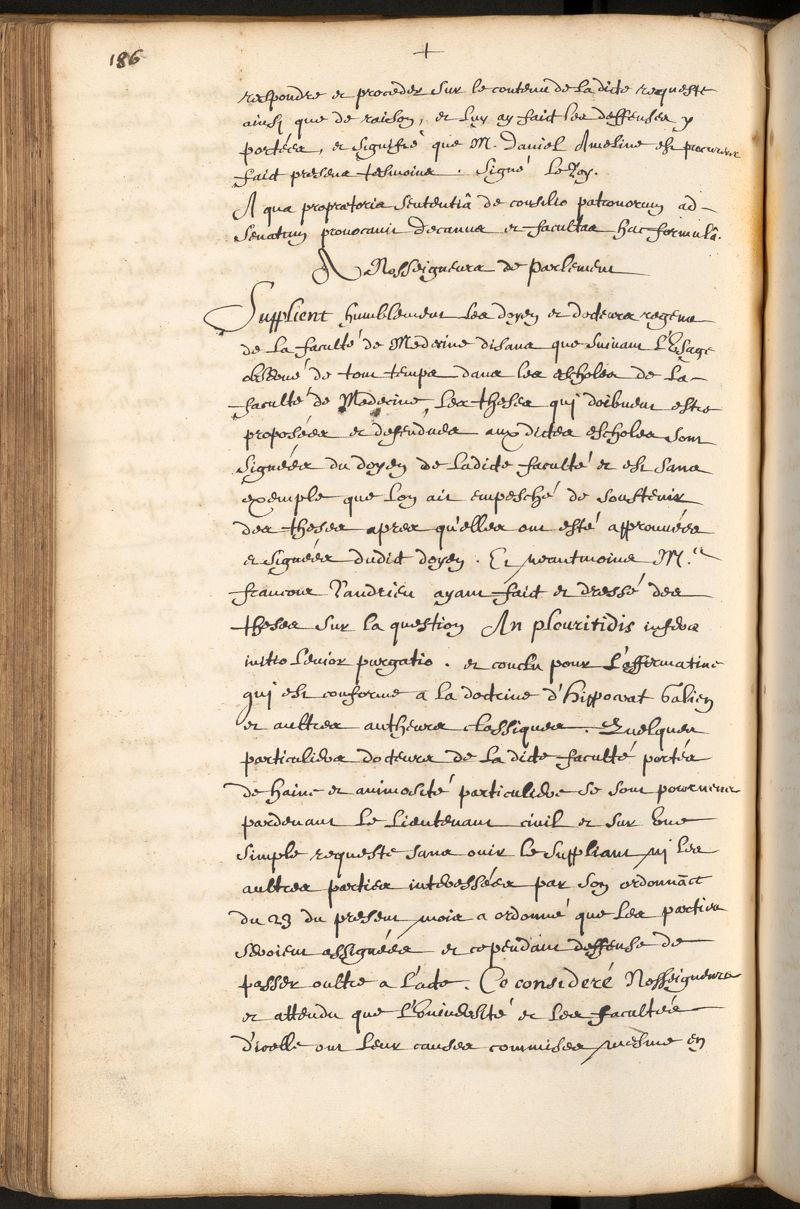 186
+
respondre et proceder sur le contenu de la dicte requeste
ainsj que de raison, et luy ay faict les deffenses y
portées, et signifié que M. Daniel Ameline est procureur
faict presens tesmoins. Signé le Roy.
A qua propraetoria sententiâ de consilio patronorum ad-
Senatum provocavit Decanus et facultas hac formulâ.
A Nosseigneurs de Parlement
Supplient humblement les doyen et docteurs regens
de la faculté de Medecine disans que suivant l'Usage
observé de tout temps dans les escholes de la
faculté de Medecine, les theses qui doibuent estre
proposées et defendues aux dictes escholes sont
signées du doyen de ladicte faculté et est sans
exemple que lon ait empesché de soustenir
des theses apres qu'elles ont esté approuvées
et signées dudict doyen. Et neantmoins M.e
francois Vandrieu ayant faict et dressé des
theses sur la question An pleuritidis
initio lenior purgatio. et conclu pour l'affirmatiue
qui est conforme a la doctrine d'Hippocrat Galien
et aultres autheurs classiques. Quelques
particuliers docteurs de la dicte faculté portés
de haine et animosité particuliere se sont pourueus
pardeuant le lieutenant civil et sur vne
simple requeste sans ouir le suppliant nj les
aultres parties interessées par son ordonnãce
du 23 du present mois a ordonné que les parties
seroient assignées et cependant deffense de
passer oultre a l'acte. Ce consideré Nosseigneurs
et attendu que l'Vniuersité et les facultés
d'icelle ont leurs causes commises mesme en